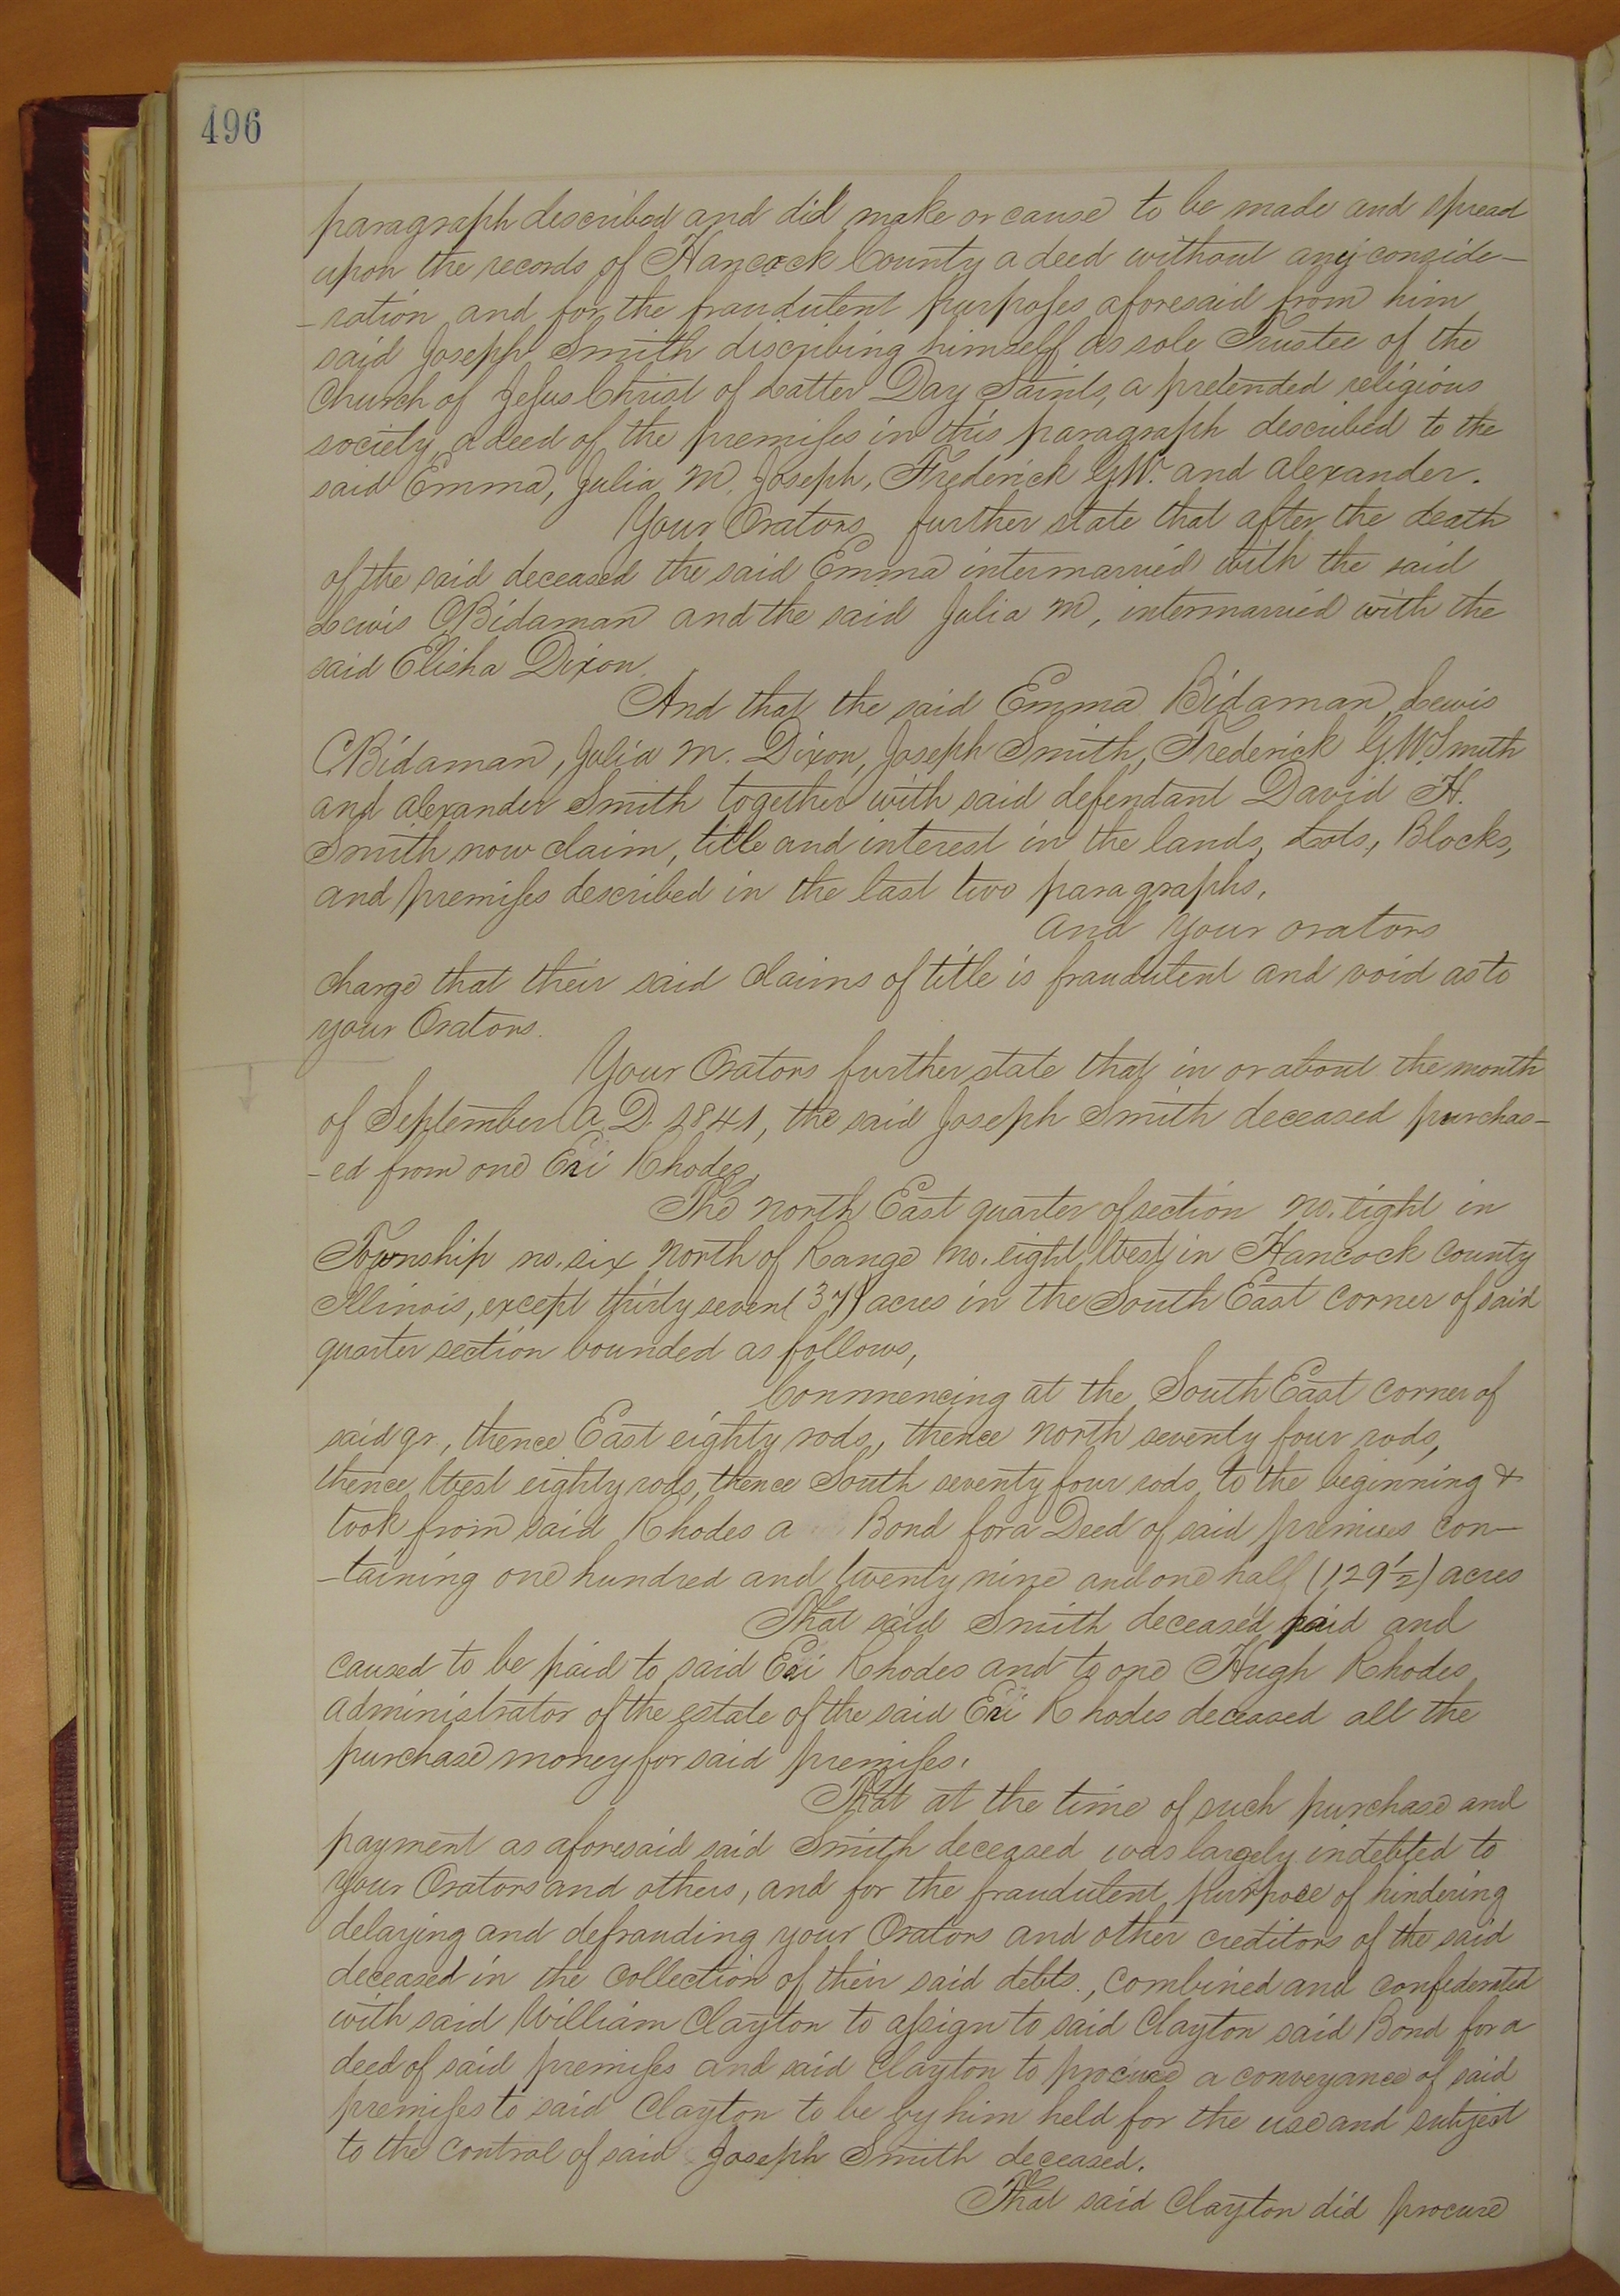 496
paragraph described and did make or cause to be made and spread
upon the records of Hancock County a deed without any conside-
-ration and for the fraudulent purposes aforesaid from him
said Joseph Smith discribing himself as sole Trustee of the
Church of Jesus Christ of Latter Day Saints, a pretended religious
society a deed of the premises in this paragraph described to the
said Emma, Julia M. Joseph, Frederick G.W. and Alexander.
Your Orators further state that after the death
of the said deceased the said Emma intermarried with the said
Lewis C Bidaman and the said Julia M, intermarried with the
said Elisha Dixon.
And that the said Emma Bidaman, Lewis
C Bidaman, Julia M. Dixon, Joseph Smith, Frederick G.W. Smith
and Alexander Smith together with said defendant David H.
Smith now claim, title and interest in the lands, Lots, Blocks,
and premises described in the last two paragraphs.
And your orators
charge that their said claims of title is fraudulent and void as to
your Orators.
Your Orators further state that in or about the month
of September A.D. 1841, the said Joseph Smith deceased purchas-
-ed from one Eri Rhodes,
The North East quarter of section no. eight in
Township no. six North of Range no. eight West in Hancock County
Illinois, except thirty seven (37) acres in the South East corner of said
quarter section bounded as follows,
Commencing at the South East corner of
said qr., thence East eighty rods, thence North seventy four rods,
thence West eighty rods, thence South seventy four rods to the beginning &
took from said Rhodes a Bond for a Deed of said premises con-
-taining one hundred and twenty nine and one half (129 1/2) acres
That said Smith deceased paid and
caused to be paid to said Eri Rhodes and to one Hugh Rhodes
administrator of the estate of the said Eri Rhodes deceased all the
purchase money for said premises.
That at the time of such purchase and
payment as aforesaid said Smith deceased was largely indebted to
your Orators and others, and for the fraudulent purpose of hindering
delaying and defrauding your Orators and other creditors of the said
deceased in the collection of their said debts., combined and confederated
with said William Clayton to assign to said Clayton said Bond for a
deed of said premises and said Clayton to procure a conveyance of said
premises to said Clayton to be by him held for the use and subject
to the control of said Joseph Smith deceased.
That said Clayton did procure